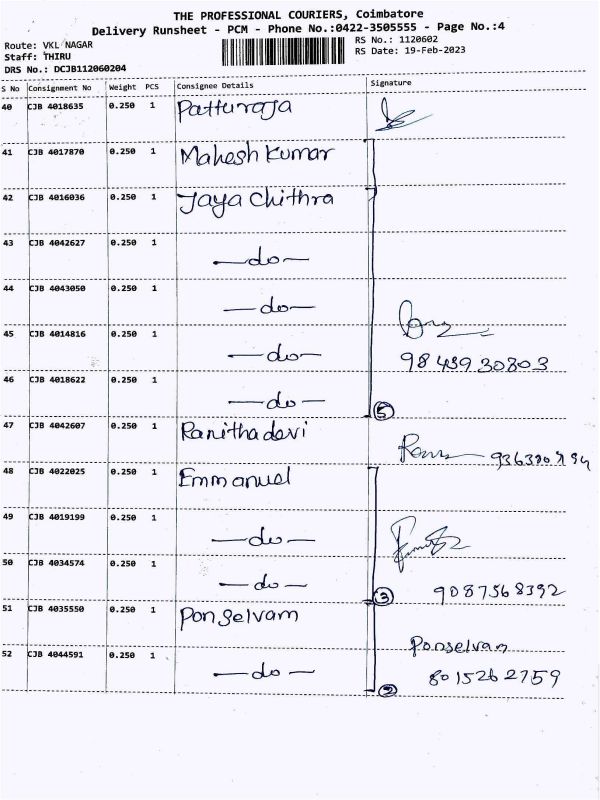 THE PROFESSIONAL COURIERS, Coimbatore
Delivery Runsheet - PCM - Phone No.:0422-3505555 - Page No.:4
Route: VKL NAGAR
RS No.: 1120602
Staff: THIRU
RS Date: 19-Feb-2023
DRS No.: DCJB112060204
S No Consignment No Weight PCS Consignee Details Signature
40 CJB 4018635 0.250 1 Patturaja
41 CJB 4017870 0.250 1 Mahesh Kumar
42 CJB 4016036 0.250 1 Jaya Chithra
43 CJB 4042627 0.250 1 —do—
44 CJB 4043050 0.250 1 —do—
45 CJB 4014816 0.250 1 —do— 9843930803
46 CJB 4018622 0.250 1 —do— 5
47 CJB 4042607 0.250 1 Ranithadevi
48 CJB 4022025 0.250 1 Emmanuel
49 CJB 4019199 0.250 1 —do—
50 CJB 4034574 0.250 1 —do— 3 9087568392
51 CJB 4035550 0.250 1 Ponselvam Ponselvam
52 CJB 4044591 0.250 1 —do— 8015262759
2